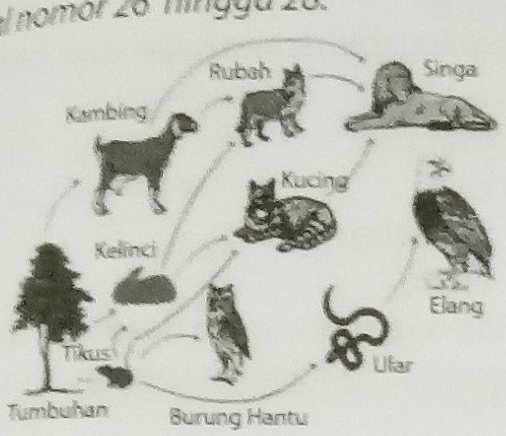 nomor 26 hingga 28.
Rubah
Singa
Kambing
Kucing
Kelinci
Elang
Tikus
Ular
Tumbuhan
Burung Hantu